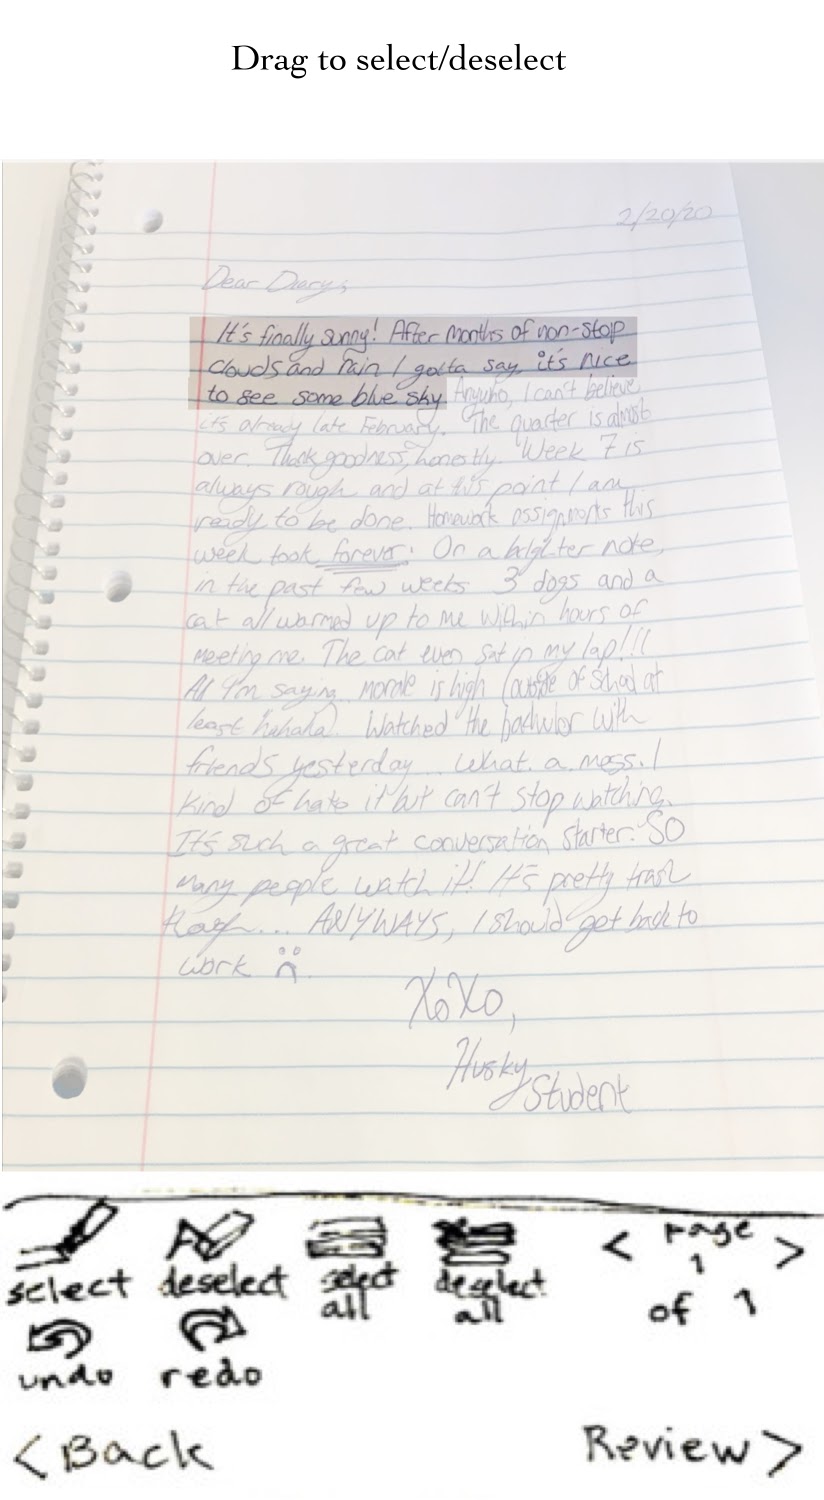 Drag to select/deselect
2/20/20
Dear Diary,
It's finally sunny! After months of non-stop
clouds and rain I gotta say it's nice
to see some blue sky. Anywho, I can't believe
it's already late February. The quarter is almost
over. Thank goodness, honestly. Week 7 is
always rough and at this point I am
ready to be done. Homework assignments this
week took forever. On a brighter note,
in the past few weeks 3 dogs and a
cat all warmed up to me within hours of
meeting me. The cat even sat in my lap!!!
All I'm saying, morale is high (outside of school at
least hahaha). Watched the bachelor with
friends yesterday. What a mess. I
kind of hate it but can't stop watching.
It's such a great conversation starter. SO
many people watch it! It's pretty trash
... ANYWAYS, I should get back to
work
XoXo,
Husky
Student
select deselect select all deselect all < Page 1 of 1 >
undo redo
< Back Review >